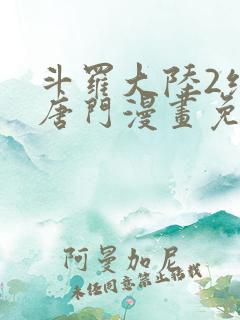 斗羅大陸2
唐門漫畫免
阿曼加尼
未经同意禁止转载